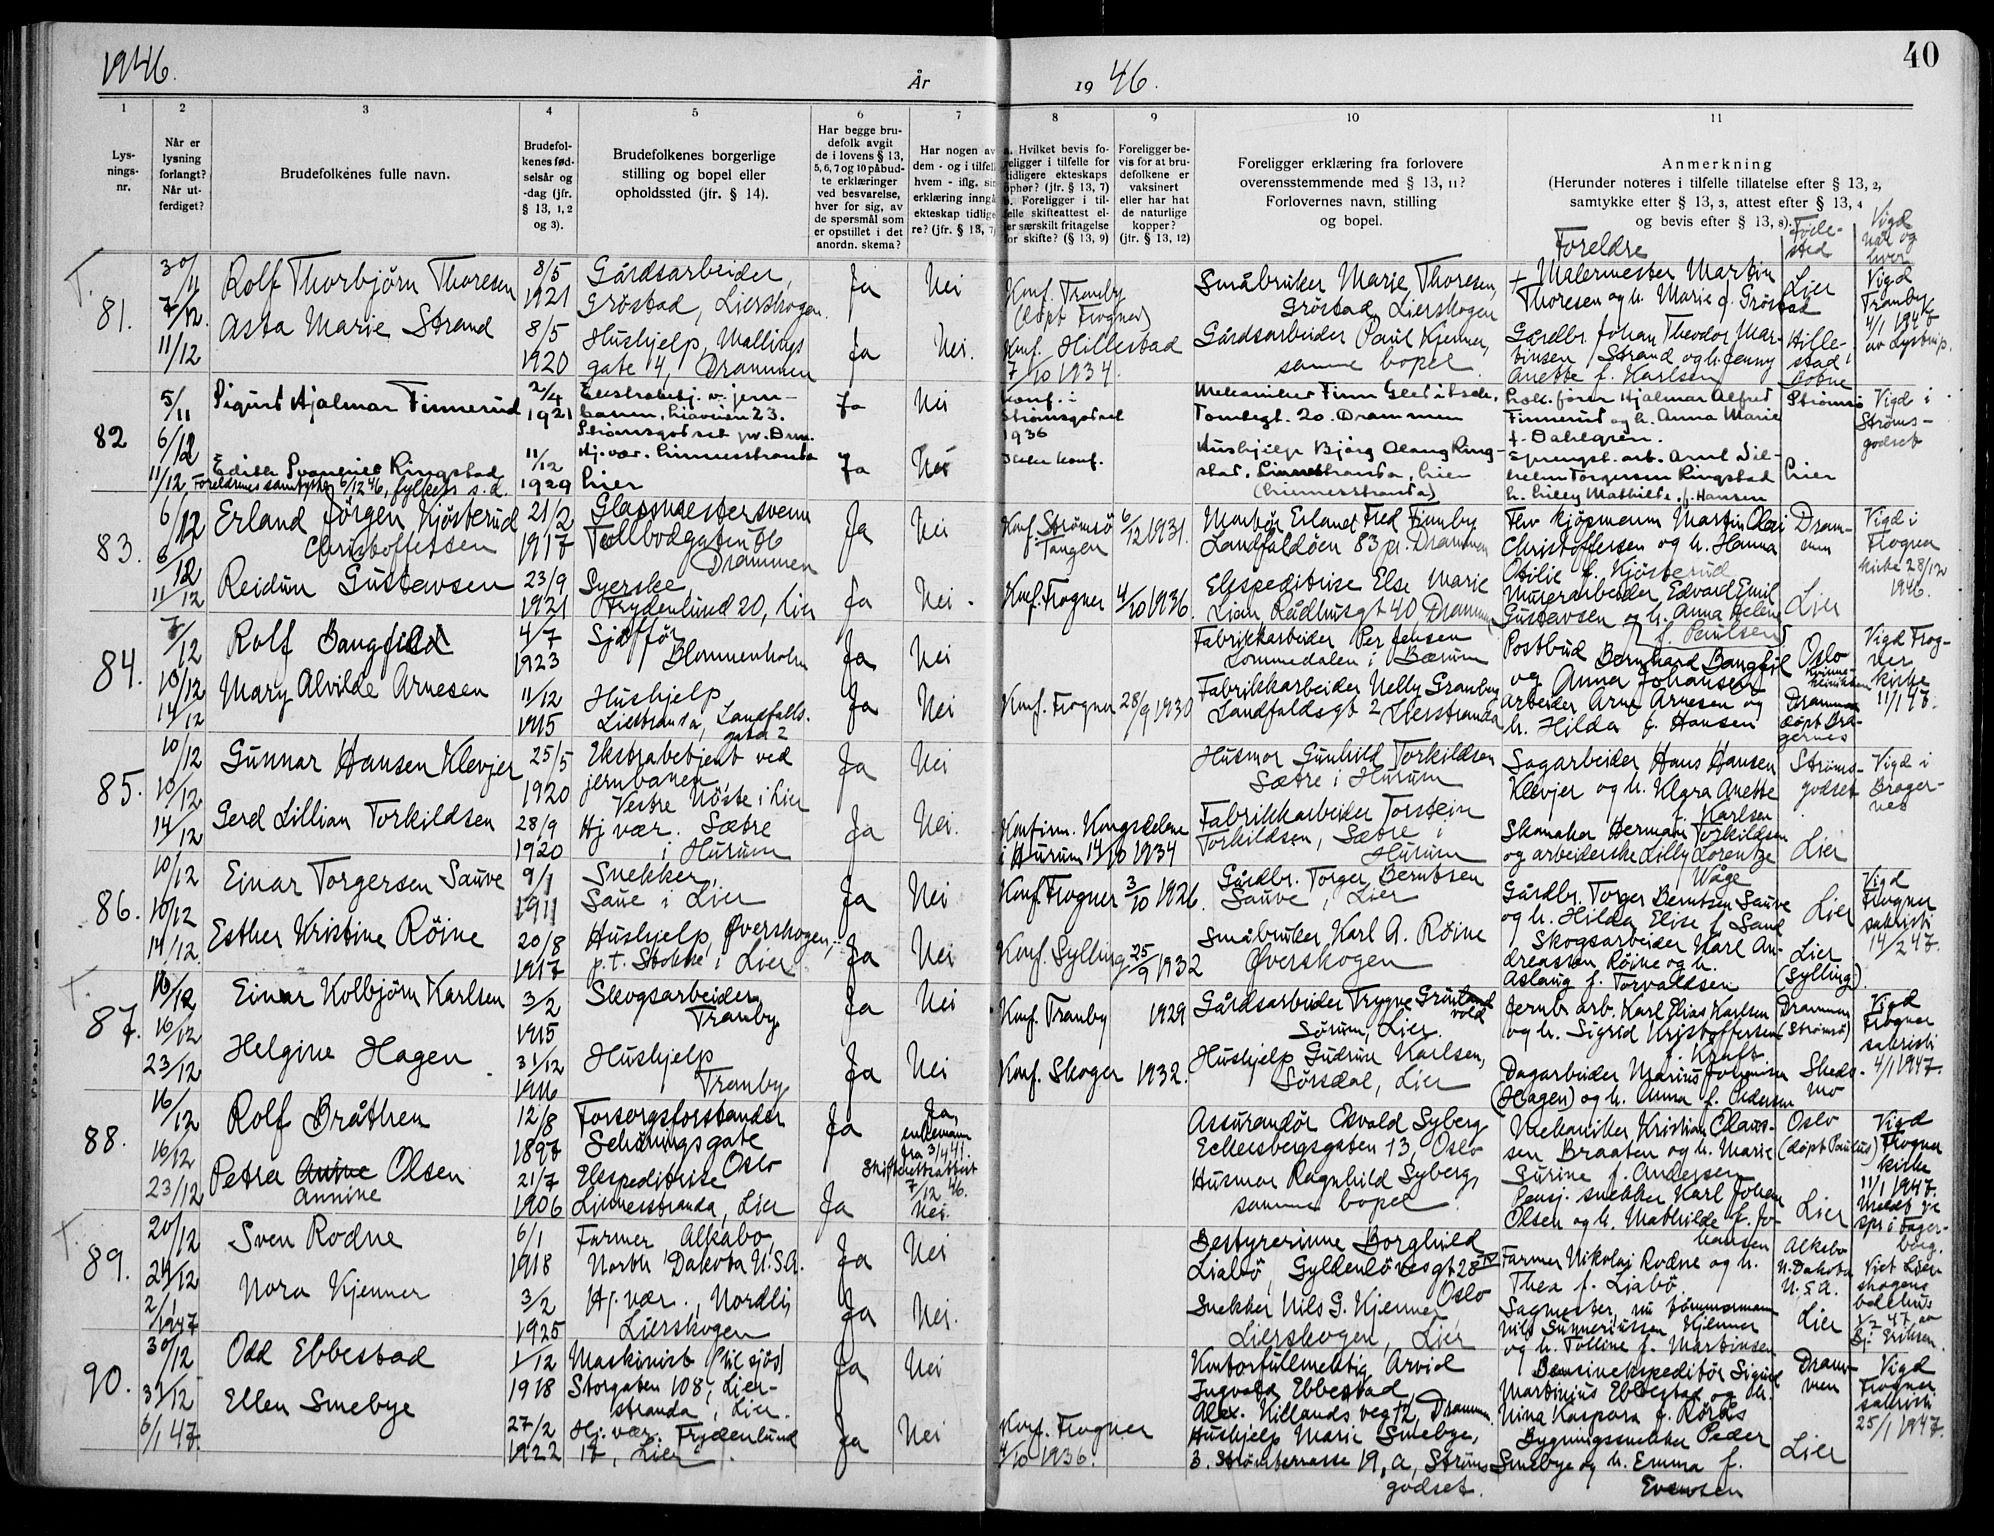 1946.
År
19 46.
40
1
2
3
4
5
6
7
8
9
10
11
Lys-
nings-
nr.
Når er
lysning
forlangt?
Når ut-
ferdiget?
Brudefolkenes fulle navn.
Brudefol-
kenes fød-
selsår og
-dag (jfr.
§ 13, 1, 2
og 3).
Brudefolkenes borgerlige
stilling og bopel eller
opholdssted (jfr. § 14).
Har begge bru-
defolk avgit
de i lovens § 13,
5, 6, 7 og 10 påbud-
te erklæringer
ved besvarelse,
hver for sig, av
de spørsmål som
er opstillet i det
anordn. skema?
Foreligger be-
vis for at bru-
defolkene er
vaksinert
eller har hat
de naturlige
kopper?
(jfr. § 13, 12)
Foreligger erklæring fra forlovere
overensstemmende med § 13, 11?
Forlovernes navn, stilling
og bopel.
Anmerkning
(Herunder noteres i tilfelle tillatelse efter § 13, 2,
samtykke etter § 13, 3, attest efter § 13, 4
og bevis efter § 13, 8).
Foreldre
Føde-
sted
Vigd
når og
hvor
T.
81.
30/11
7/12.
11/12
Rolf Thorbjørn Thoresen
Asta Marie Strand
8/5
1921
8/5
1920
Gårdsarbeider,
Grøstad, Lierskogen.
Hushjelp, Mallings
gate 4, Drammen
Ja
Nei
Ja
Nei.
Konf. Tranby
(døpt Frogner)
Konf. Hillestad
7/10 1934.
Småbruker Marie Thoresen,
Grøstad, Lierskogen
Gårdsarbeider Paul Kjenner,
samme bopel.
+ Malermester Martin
Thoresen og h. Marie f. Grøstad
Gårdbr. Johan Theodor Mar-
tinsen Strand og h. Jenny
Anette f. Karlsen
Lier
Hille-
stad i
Botne
Vigd
Tranby k
4/1 1947
av Lystrup.
82
5/11
6/12
11/12
Sigurd Hjalmar Finnerud
Edith Svanhild Ringstad
Foreldrenes samtykke 6/12 46, fylkets s.d.
2/4
1921
11/12
1929
Ekstrabetj. v. jern-
banen, Liaveien 23.
Strømsgodset pr. Drm.
Hj. vær. Linnesstranda
Lier
Ja
Nei
Ja
Nei
Konf. i
Strømsgodset
1936
Ikke konf.
Mekaniker Finn Gletitsch,
Tomtegt. 20. Drammen
Hushjelp Bjørg Olaug Ring-
stad, Linnestranda, Lier
(Linnesstranda)
Lok. fører Hjalmar Alfred
Finnerud og h. Anna Marie
f. Dahlgren.
Sprengst. arb. Arnt Vil-
helm Torgersen Ringstad
h. Lilly Mathilde, f. Hansen
Strømsø
Lier
Vigd i
Strøms-
godset
83.
6/12
6/12
11/12
Erland Jörgen Kjösterud
Christoffersen
Reidun Gustavsen
21/2
1917
23/9
1921
Glassmestersvenn
Tollbodgaten 66
Drammen
Syerske
Frydenlund 20, Lier
Ja
Nei
Ja
Nei.
Konf. Strømsø 6/12 1931.
Tangen
Konf. Frogner 4/10 1936.
Montör Erland Fred Finnby
Landfaldöen 83 pr. Drammen
Ekspeditrise Else Marie
Lian, Rådhusgt 40, Drammen
Fhv kjøpmann Martin Olai
Christoffersen og h. Hanna
Otilie f. Kjösterud
Murerarbeider Edvard Emil
Gustavsen og h. Anna Helene
f. Paulsen
Dram-
men
Lier
Vigd i
Frogner
kirke 28/12
1946.
84.
7/12
10/12
14/12
Rolf Bangfild
Mary Alvilde Arnesen
4/7
1923
11/12
1915
Sjåffør
Blommenholm
Hushjelp
Lierstranda, Landfalls-
gata 2
Ja
Nei
Ja
Nei
Konf. Frogner 28/9 1930
Fabrikkarbeider Per Jensen
Lommedalen i Bærum
Fabrikkarbeider Nelly Granberg
Landfaldsgt 2 Lierstranda
Postbud Bernhard Bangfil
og Anna Johansen
Arbeider Arne Arnesen og
h. Hilda f. Hansen
Oslo
Drammen
döpt Bra-
gernes
Vigd Frog-
ner
kirke
11/1 47.
85.
10/12
10/12
14/12
Gunnar Hansen Klevjer
Gerd Lillian Torkildsen
25/5
1920
28/9
1920
Ekstrabetjent ved
jernbanen,
Vestre Nöste i Lier
Hj vær. Sætre
i Hurum
Ja
Nei
Ja
Nei.
Konfirm. Kongsdelene
i Hurum 14/10 1934
Husmor Gunhild Torkildsen
Sætre i Hurum
Fabrikkarbeider Torstein
Torkildsen, Sætre i
Hurum
Sagarbeider Hans Hansen
Klevjer og h. Klara Anette
f. Karlsen
Skomaker Herman Torkildsen
og arbeiderske Lilly Lorentze
Våge
Strøms-
godset
Lier
Vigd i
Brager-
nes
86.
10/12
10/12
14/12.
Einar Torgersen Sauve
Esther Kristine Röine
9/1
1911
20/8
1917
Snekker,
Saue i Lier
Hushjelp, Øverskogen,
p.t. Stokke i Lier
Ja
Nei
Ja
Nei
Konf. Frogner 3/10 1926.
Konf. Sylling 25/9 1932
Gårdbr. Torger Berntsen
Sauve, Lier
Småbruker Karl A. Röine
Øverskogen
Gårdbr. Torger Berntsen Sauve
og h. Hilda Elise f. Sand
Skogsarbeider Karl An-
dreassen Röine og h.
Aslaug f. Torvaldsen
Lier
Lier
(Sylling).
Vigd
Frogner
sakristi
14/2 47.
T.
87.
16/12
16/12
23/12
Einar Kolbjørn Karlsen
Helgine Hagen
3/2
1915
31/12
1916
Skogsarbeider
Tranby
Hushjelp
Tranby
Ja
Nei
Ja
Nei
Konf. Tranby 1929
Konf. Skoger 1932.
Gårdsarbeider Trygve Grönvold
Sørum, Lier
Hushjelp Gudrun Karlsen,
Sörsdal, Lier
Jernb. arb. Karl Elias Karlsen
og h. Sigrid Kristoffersen
f. Kraft.
Dagarbeider Marius Johansen
(Hagen) og h. Anna f. Pedersen
Drammen
(Strømsø)
Skeds-
mo
Vigd
Frogner
sakristi
4/1 1947.
88.
16/12
16/12
23/12
Rolf Bråthen
Petra Olsen
Annine
12/8
1897
21/7
1906
Forsorgsforstander
Schöningsgate
Oslo
Ekspeditrise
Linnesstranda, Lier
Ja
Ja,
enkemann
fra 3/4 41.
Skifterettsattest
7/12 46.
Ja
Nei.
Assurandør Osvald Syberg
Eckersbergsgaten 13, Oslo
Husmor Ragnhild Syberg,
samme bopel.
Mekaniker Kristian Olaus-
sen Braaten og h. Marie
Surine f. Andersen
Pensj. snekker Karl Johan
Olsen og h. Mathilde f. Jo-
hansen
Oslo
(døpt Paulus)
Lier
Vigd
Frogner
kirke
11/1 1947.
Meldt sp
spr i Fager-
borg.
T.
89.
20/12
21/12
2/1 1947
Sven Rodne
Nora Kjenner
6/1
1918
3/2
1925
Farmer Alkabo,
North Dakota U.S.A.
Hj. vær., Nordli,
Lierskogen
Ja
Nei
Ja
Nei.
Bestyrerinne Borghild
Liabö, Gyldenlövesgt 28 IV
Oslo
Snekker Nils G. Kjenner
Lierskogen, Lier
Farmer Nikolai Rodne og h.
Thea f. Liabö.
Sagmester, nu tømmermann
Nils Gunneriussen Kjenner
og h. Tolline f. Martinsen
Alkabo
N. Dakota
U.S.A.
Lier
Viet Lier-
skogens
bedehus
1/2 47, av
Bj. Eriksen.
90.
30/12
31/12
6/1 47.
Odd Ebbestad
Ellen Smebye
1/12
1918
27/2
1922
Maskinist (til sjøs)
Storgaten 108, Lier-
stranda, Lier.
Hj. vær. Frydenlund
17, Lier.
Ja
Nei
Ja
Nei
Konf. Frogner
4/10 1936.
Kontorfullmektig Arvid
Ingvald Ebbestad
Alex. Killands veg 12, Drammen.
Hushjelp Marie Smebye,
3. Strømterrasse 19, a, Strøms
godset.
Bensinekspeditör Sigurd
Martinius Ebbestad og h.
Nina Kaspara f. Rørås
Bygningssnekker Peder
Smebye og h. Emma f.
Evensen
Dram-
men
Lier
Vigd
Frogner
sakristi
25/1 1947.